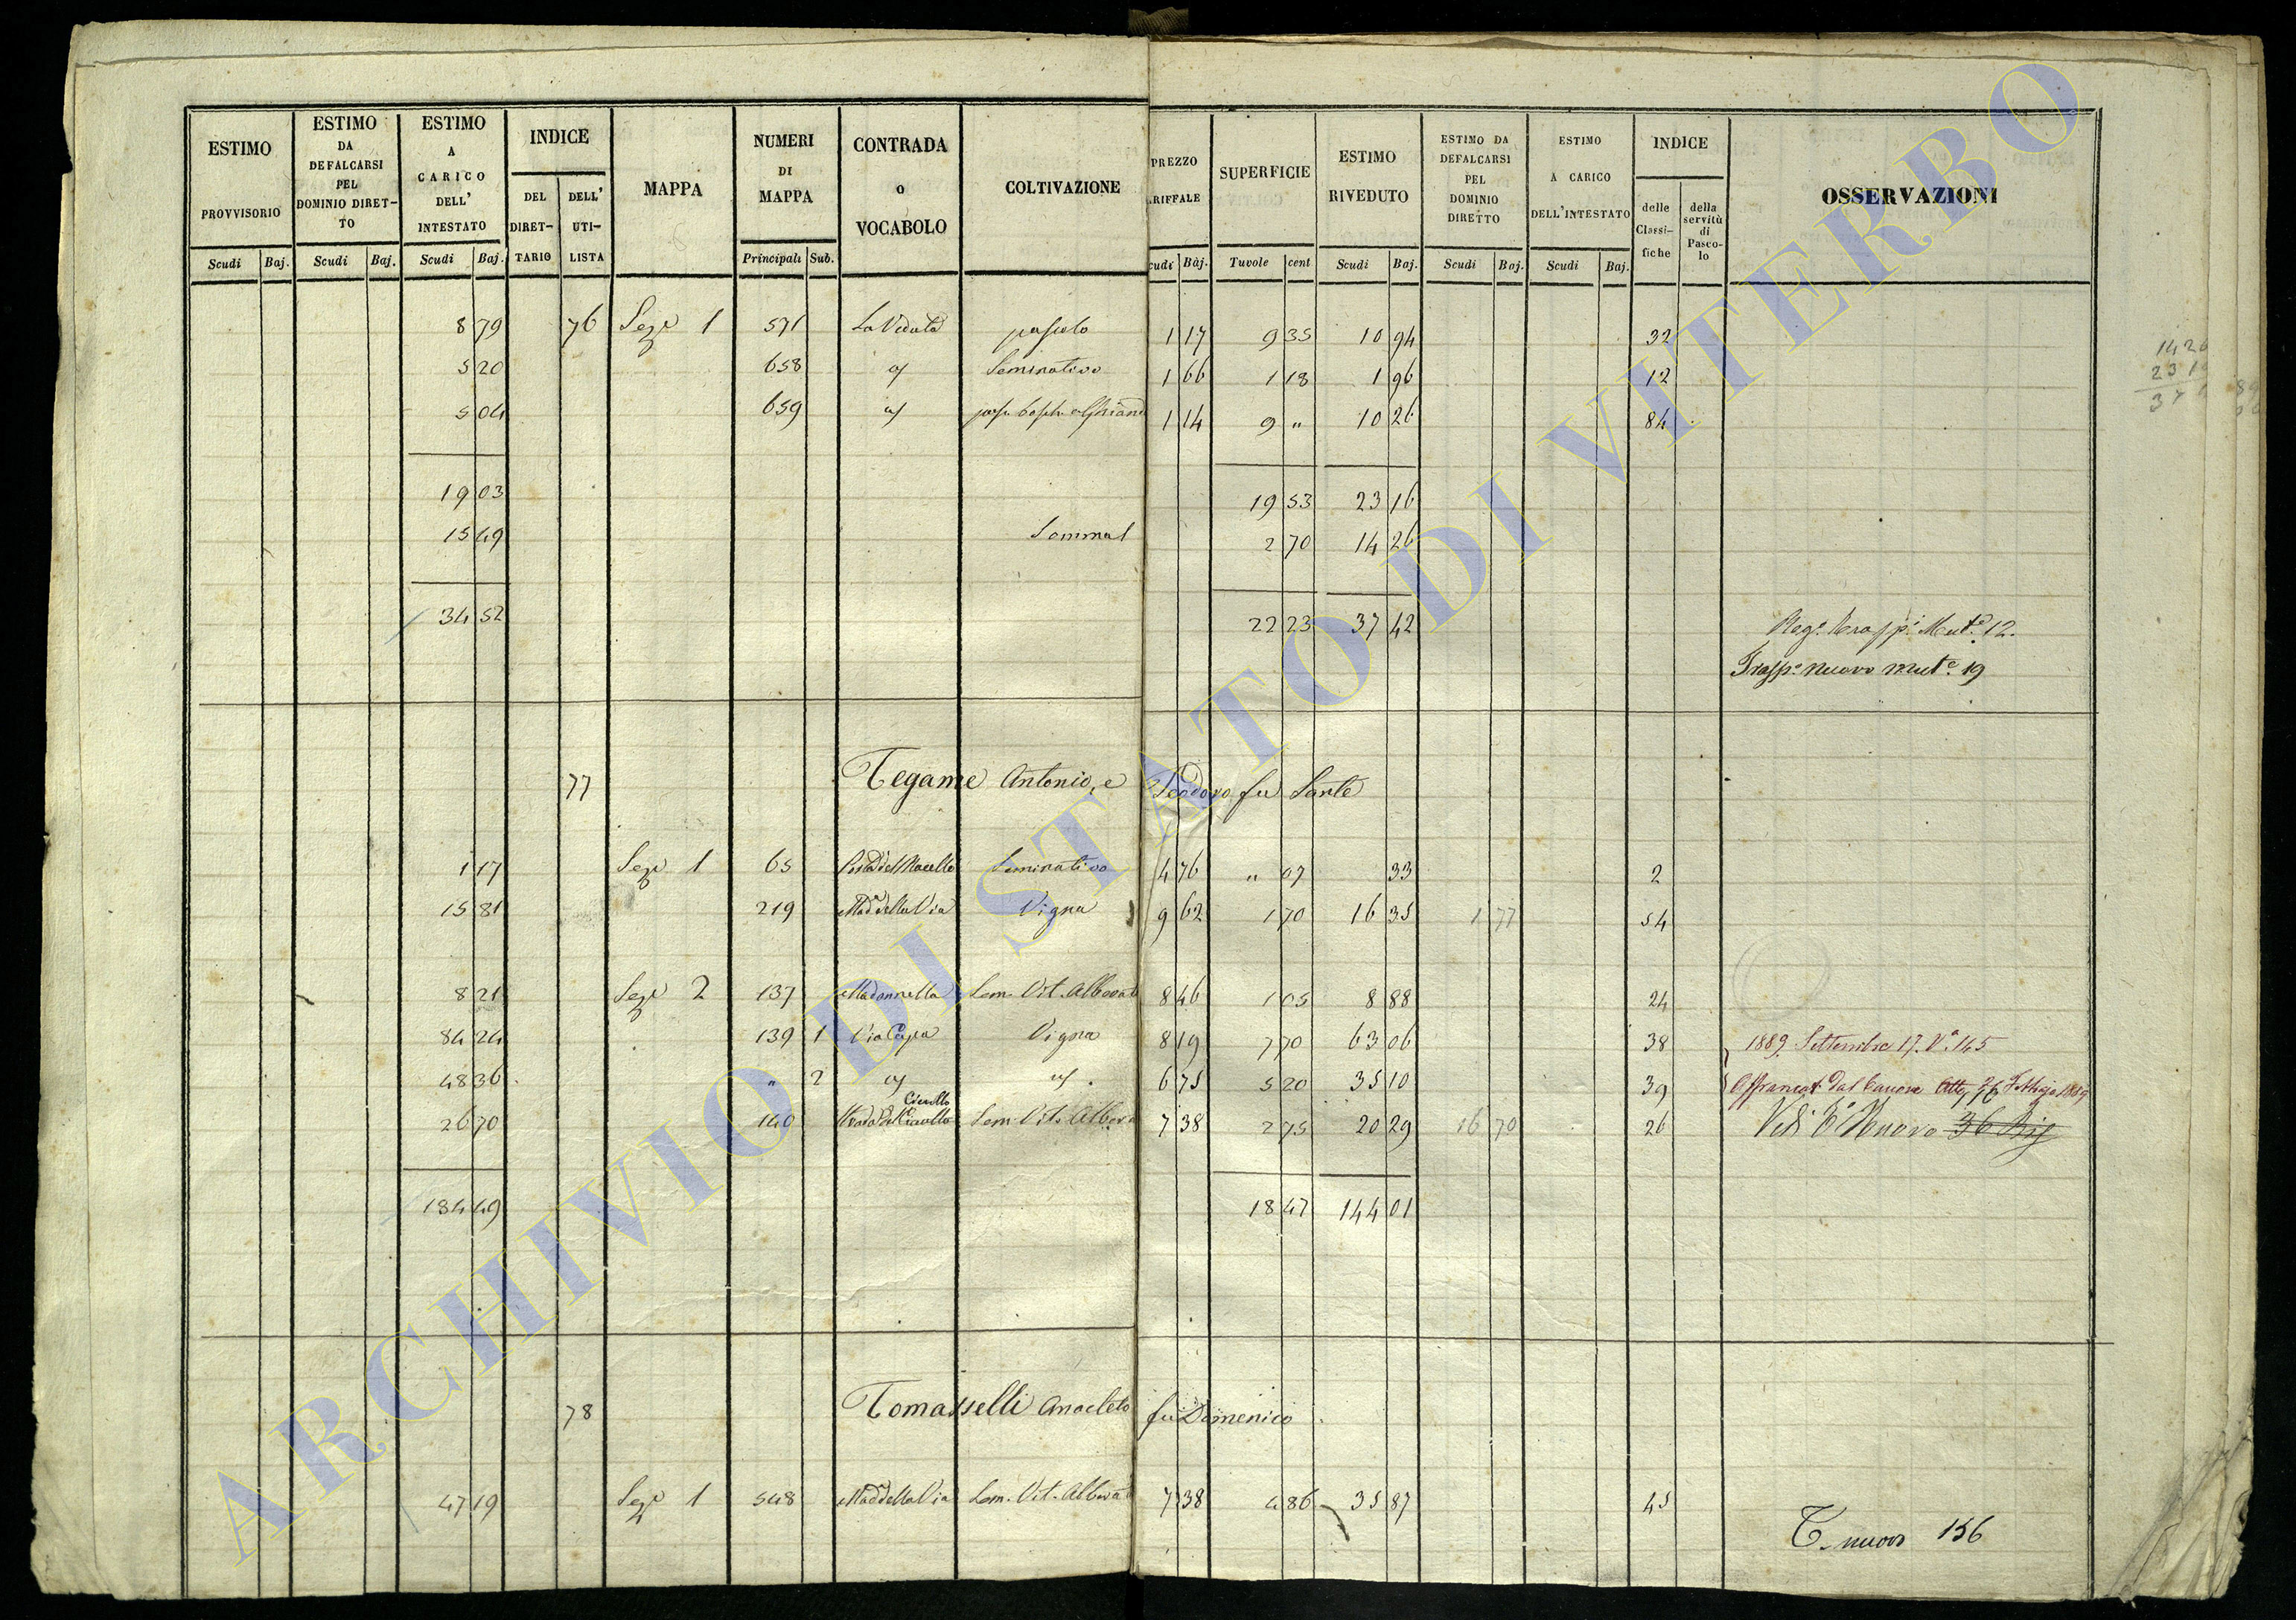 ESTIMO PROVVISORIO | ESTIMO DA DEFALCARSI PEL DOMINIO DIRET-TO | ESTIMO A CARICO DELL' INTESTATO | INDICE DEL DIRET-TARIO | DELL' UTI-LISTA | MAPPA | NUMERI DI MAPPA | CONTRADA O VOCABOLO | COLTIVAZIONE | PREZZO RIFFALE | SUPERFICIE | ESTIMO RIVEDUTO | ESTIMO DA DEFALCARSI PEL DOMINIO DIRETTO | ESTIMO A CARICO DELL'INTESTATO | INDICE delle Classi-fiche | della servitù di Pasco-lo | OSSERVAZIONI
Scudi | Baj. | Scudi | Baj. | Scudi | Baj. | Principali | Sub. | cudi | Baj. | Tavole | cent | Scudi | Baj. | Scudi | Baj. | Scudi | Baj.
8 79 | 76 | Sezе 1 | 571 | La Veduta | pascolo | 1 17 | 9 35 | 10 94 | 32
5 20 | 658 | Seminativo | 1 66 | 1 18 | 1 96 | 12
5 04 | 659 | 1 14 | 9 " | 10 26 | 84
19 03 | 19 53 | 23 16
15 49 | Sommat | 2 70 | 14 26
34 52 | 22 23 | 37 42 | Mut.e 12.
Trasp.o nuovo Mut.e 19
77 | Tegame Antonio, e Teodoro fu Sante
1 17 | Seze 1 | 65 | Porta del Macello | Seminativo | 4 76 | " 07 | 33 | 2
15 81 | 219 | Mad.a della Via | Vigna | 9 62 | 1 70 | 16 35 | 1 77 | 54
8 21 | Seze 2 | 137 | Madonnella | Sem. Vit. Alberat | 8 46 | 1 05 | 8 88 | 24
84 24 | 139 | 1 | Via Cupa | Vigna | 8 19 | 7 70 | 63 06 | 38 | 1889. Settembre 17. V.a 145
48 36 | " | 2 | 6 75 | 5 20 | 35 10 | 39 | Affrancat. dal Canone
26 70 | 140 | Sem. Vit. Albera | 7 38 | 2 75 | 20 29 | 16 70 | 26 | Vedi Nuovo 36
184 49 | 18 47 | 144 01
78 | Tomasselli Anacleto fu Domenico
47 19 | Seze 1 | 548 | Mad. della Via | Sem. Vit. Alberat | 7 38 | 4 86 | 35 87 | 45
T. nuovo 156
ARCHIVIO DI STATO DI VITERBO